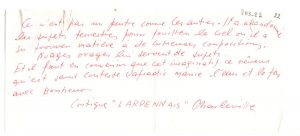 Ce n'est pas un peintre comme les autres. Il a abandonné
les sujets terrestres pour fouiller le ciel où il a
su trouver matière à de curieuses compositions.
Nuages orages lui servent de sujets
Et il faut en convenir que cet imaginatif ce rêveur
qu'est sans conteste manie l'eau et le feu
avec bonheur
Critique "L'ARDENNAIS" Charleville